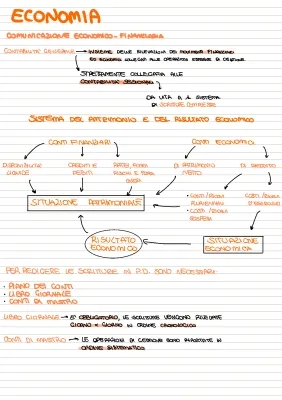 ECONOMIA
COMUNICAZIONE ECONOMICO-FINANZIARIA
CONTABILITÀ GENERALE → INSIEME DELLE RILEVAZIONI DEI MOVIMENTI FINANZIARI
ED ECONOMICI COLLEGATI ALLE OPERAZIONI ESTERNE DI GESTIONE
STRETTAMENTE COLLEGATA ALLE
CONTABILITÀ SEZIONALI
DA VITA A IL SISTEMA
DI SCRITTURE COMPLESSE
SISTEMA DEL PATRIMONIO E DEL RISULTATO ECONOMICO
CONTI FINANZIARI
CONTI ECONOMICI
DISPONIBILITÀ LIQUIDE
CREDITI E DEBITI
RATEI, FONDI RISCHI E FONDI ONERI
DI PATRIMONIO NETTO
DI REDDITO
SITUAZIONE PATRIMONIALE
• COSTI/RICAVI PLURIENNALI
• COSTI/RICAVI SOSPESI
COSTI/RICAVI D'ESERCIZIO
RISULTATO ECONOMICO
SITUAZIONE ECONOMICA
PER REDIGERE LE SCRITTURE IN P.D. SONO NECESSARI:
• PIANO DEI CONTI
• LIBRO GIORNALE
• CONTI DI MASTRO
LIBRO GIORNALE → È OBBLIGATORIO, LE SCRITTURE VENGONO RILEVATE
GIORNO X GIORNO IN ORDINE CRONOLOGICO
CONTI DI MASTRO → LE OPERAZIONI DI GESTIONE SONO RIPORTATE IN
ORDINE SISTEMATICO